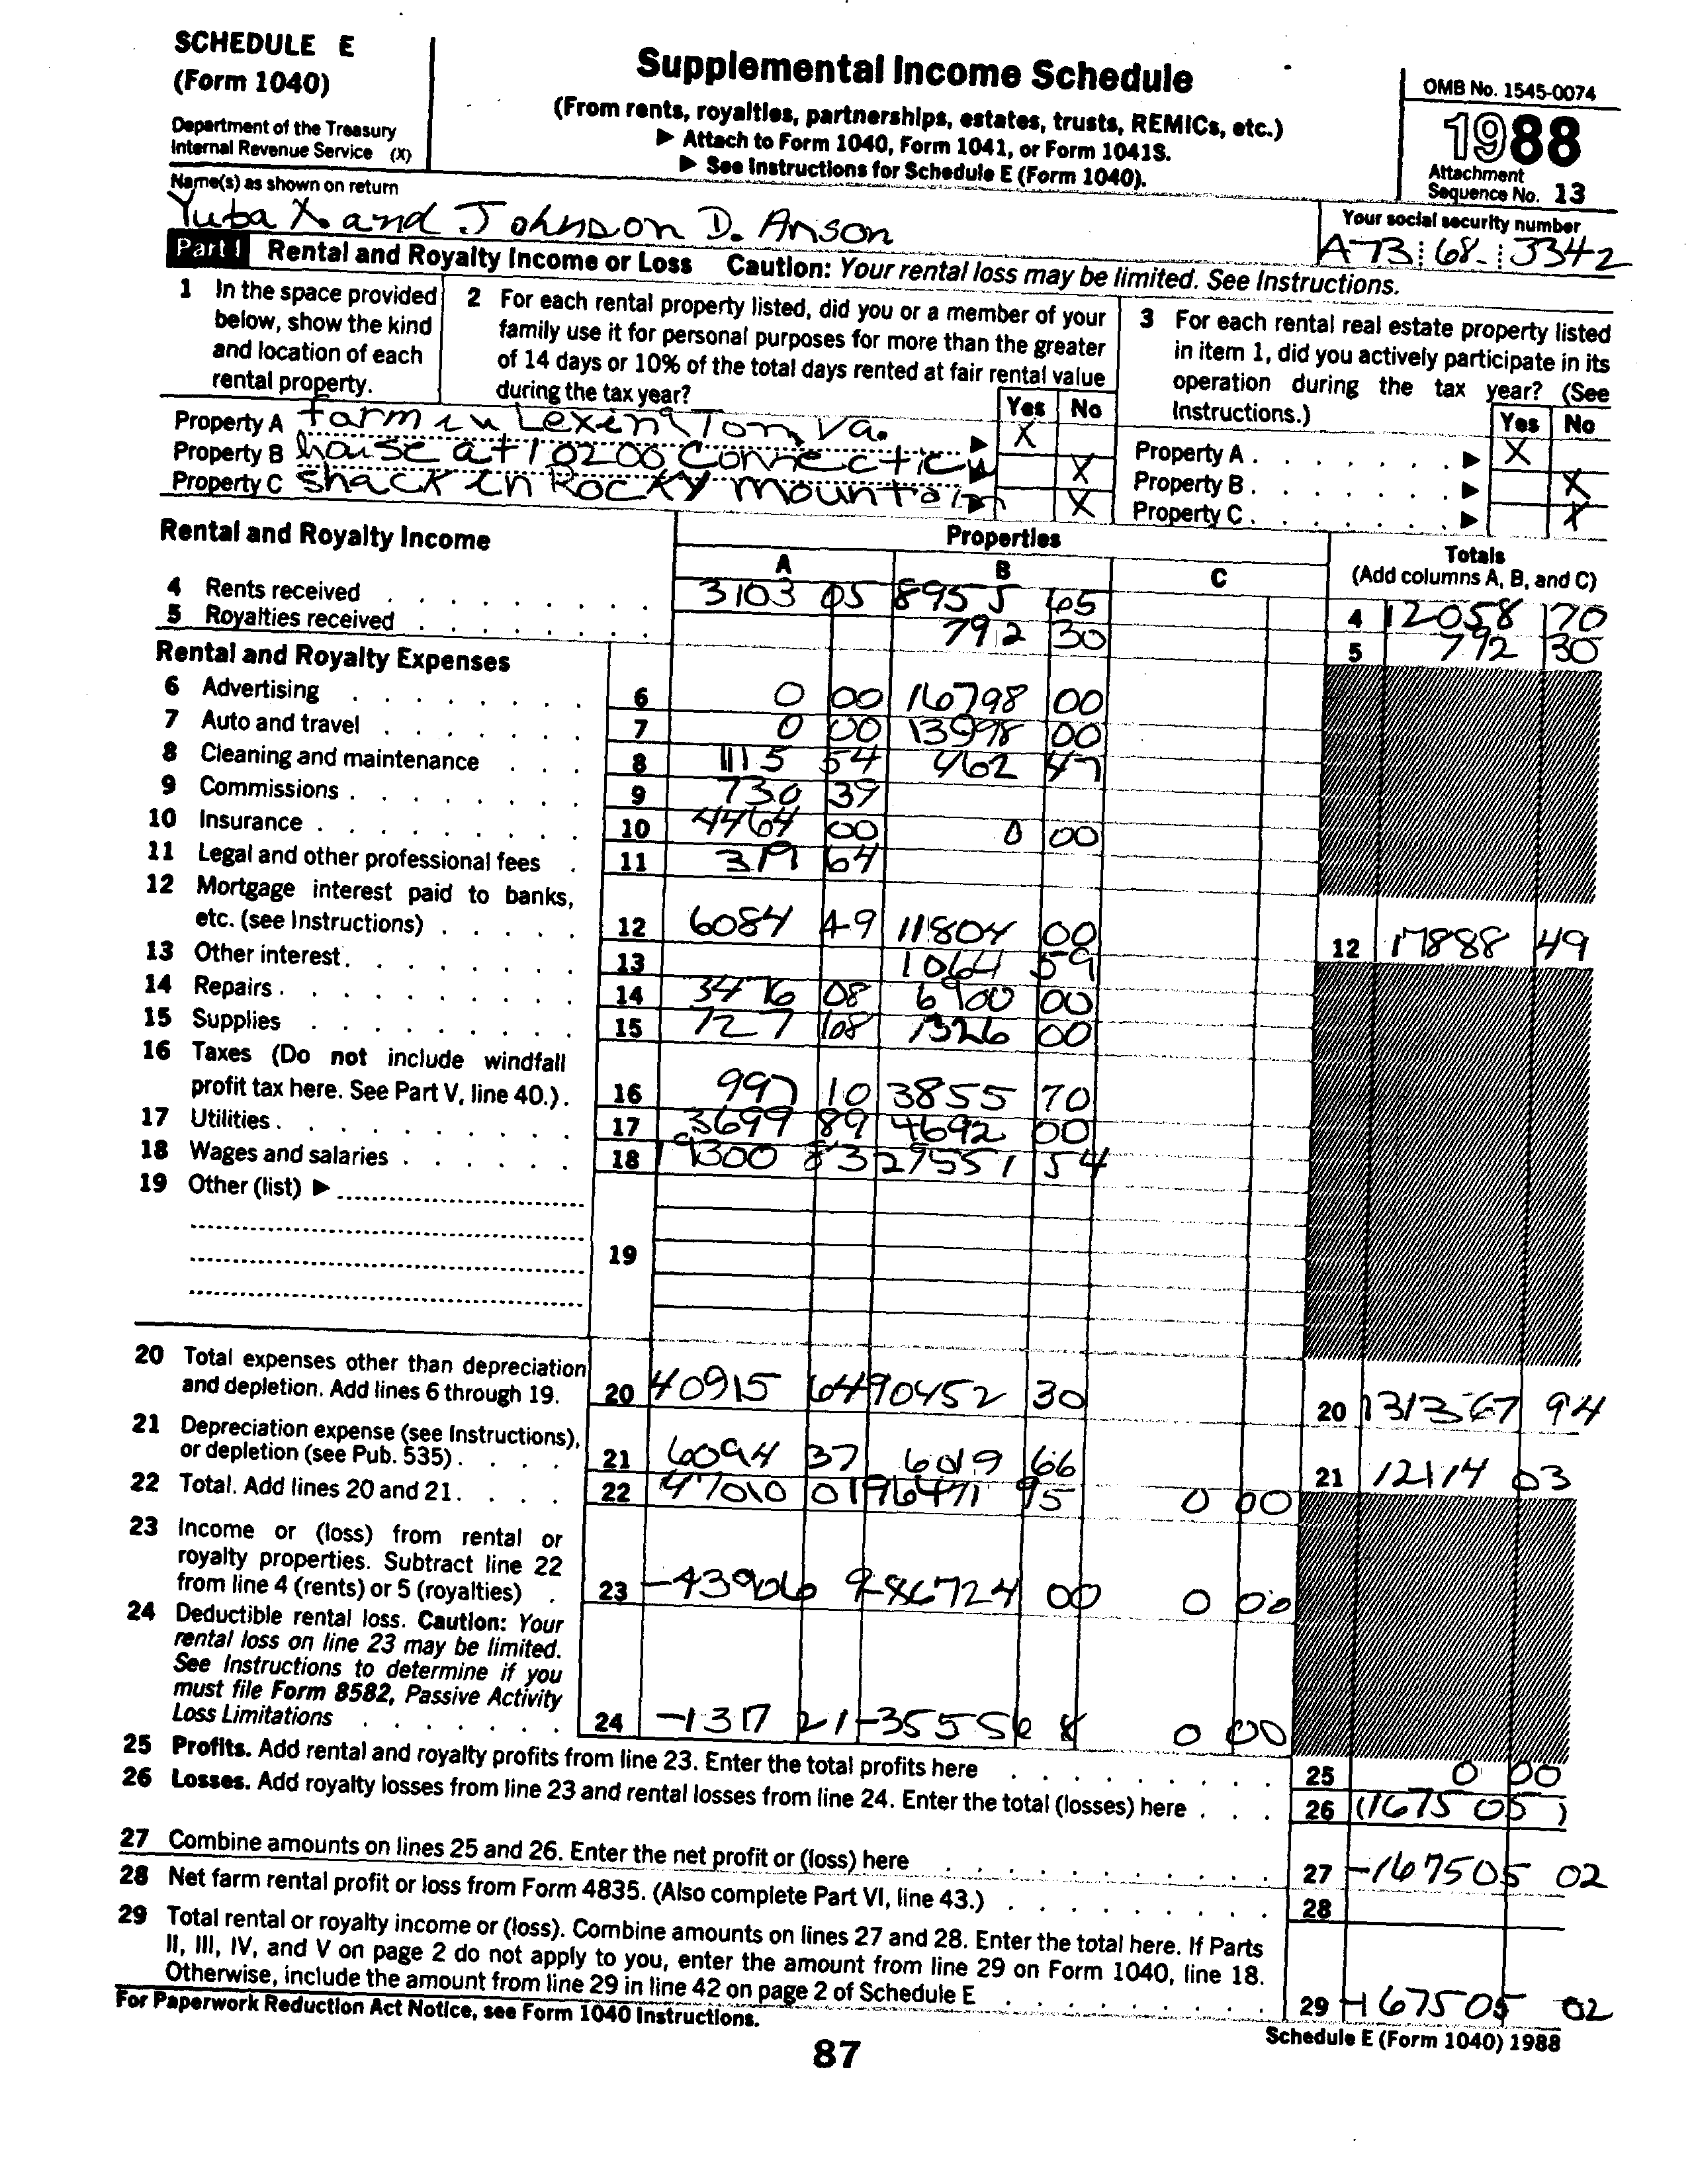 SCHEDULE E
(Form 1040)
Department of the Treasury
Internal Revenue Service (X)
Supplemental Income Schedule
(From rents, royalties, partnerships, estates, trusts, REMICs, etc.)
▶ Attach to Form 1040, Form 1041, or Form 1041S.
▶ See Instructions for Schedule E (Form 1040).
OMB No. 1545-0074
1988
Attachment
Sequence No. 13
Name(s) as shown on return
Yuba X. and Johnson D. Anson
Your social security number
A73 68 3342
Part I Rental and Royalty Income or Loss Caution: Your rental loss may be limited. See Instructions.
1 In the space provided below, show the kind and location of each rental property.
2 For each rental property listed, did you or a member of your family use it for personal purposes for more than the greater of 14 days or 10% of the total days rented at fair rental value during the tax year?
3 For each rental real estate property listed in item 1, did you actively participate in its operation during the tax year? (See Instructions.)
Yes No
Yes No
Property A farm in Lexington, Va. ▶ X
Property B house at 10200 Connecticu ▶ X
Property C shack in Rocky Mountain ▶ X
Property A . . . . . . . ▶ X
Property B . . . . . . . ▶ X
Property C . . . . . . . ▶ X
Rental and Royalty Income
Properties
A B C
Totals
(Add columns A, B, and C)
4 Rents received 3103 05 8955 65 4 12058 70
5 Royalties received 792 30 5 792 30
Rental and Royalty Expenses
6 Advertising 6 0 00 16798 00
7 Auto and travel 7 0 00 13998 00
8 Cleaning and maintenance 8 1115 54 462 47
9 Commissions 9 730 39
10 Insurance 10 4464 00 0 00
11 Legal and other professional fees 11 319 64
12 Mortgage interest paid to banks,
etc. (see Instructions) 12 6084 49 11804 00 12 17888 49
13 Other interest 13 1064 59
14 Repairs 14 3476 08 6900 00
15 Supplies 15 727 68 1326 00
16 Taxes (Do not include windfall
profit tax here. See Part V, line 40.) 16 997 10 3855 70
17 Utilities 17 3699 89 4692 00
18 Wages and salaries 18 19300 83 29551 54
19 Other (list) ▶
19
20 Total expenses other than depreciation
and depletion. Add lines 6 through 19. 20 40915 64 90452 30 20 131367 94
21 Depreciation expense (see Instructions),
or depletion (see Pub. 535) 21 6094 37 6019 66 21 12114 03
22 Total. Add lines 20 and 21 22 47010 01 96471 95 0 00
23 Income or (loss) from rental or
royalty properties. Subtract line 22
from line 4 (rents) or 5 (royalties) 23 -43906 9 -86724 00 0 00
24 Deductible rental loss. Caution: Your
rental loss on line 23 may be limited.
See Instructions to determine if you
must file Form 8582, Passive Activity
Loss Limitations 24 -1317 21 0 00
25 Profits. Add rental and royalty profits from line 23. Enter the total profits here 25 0 00
26 Losses. Add royalty losses from line 23 and rental losses from line 24. Enter the total (losses) here 26 (1675 05 )
27 Combine amounts on lines 25 and 26. Enter the net profit or (loss) here 27 -167505 02
28 Net farm rental profit or loss from Form 4835. (Also complete Part VI, line 43.) 28
29 Total rental or royalty income or (loss). Combine amounts on lines 27 and 28. Enter the total here. If Parts
II, III, IV, and V on page 2 do not apply to you, enter the amount from line 29 on Form 1040, line 18.
Otherwise, include the amount from line 29 in line 42 on page 2 of Schedule E 29 -167505 02
For Paperwork Reduction Act Notice, see Form 1040 Instructions.
Schedule E (Form 1040) 1988
87